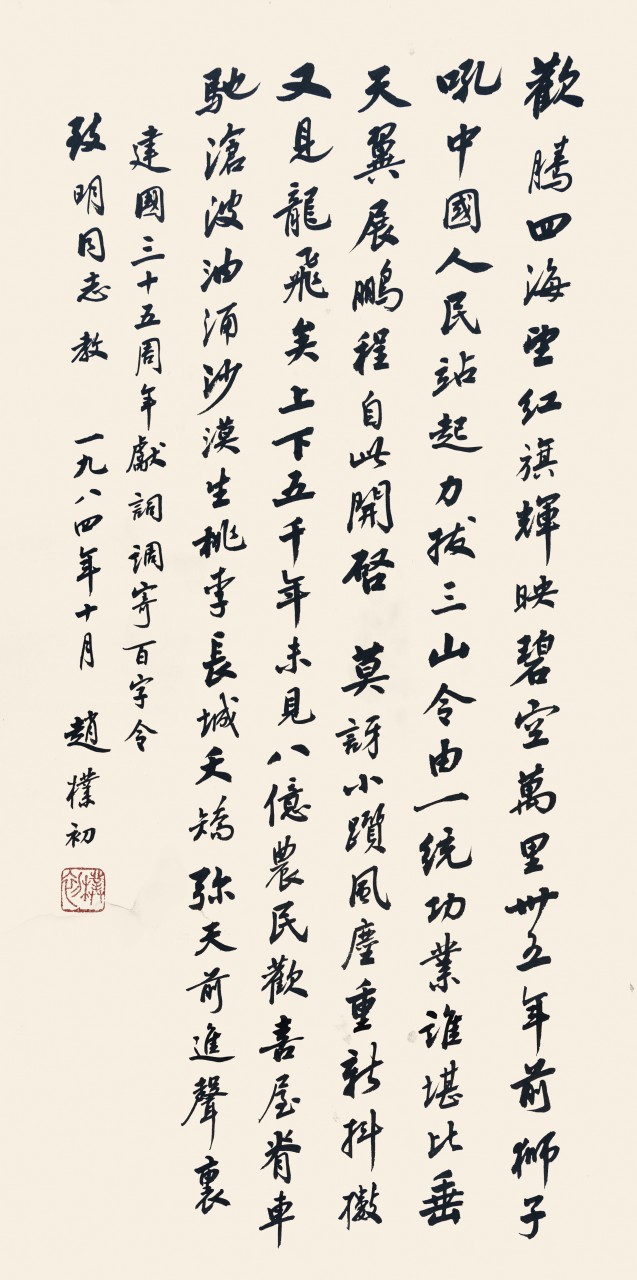 歡騰四海望紅旗輝映碧空萬里卅五年前獅子
吼中國人民站起力拔三山令由一統功業誰堪比垂
天翼展鵬程自此開啓 莫訝小躓風塵重新抖擻
又見龍飛矣上下五千年未見八億農民歡喜屋脊車
馳滄波油涌沙漠生桃李長城夭矯弥天前進聲裏
建國三十五周年獻詞調寄百字令
致明同志教 一九八四年十月 趙樸初
樸初